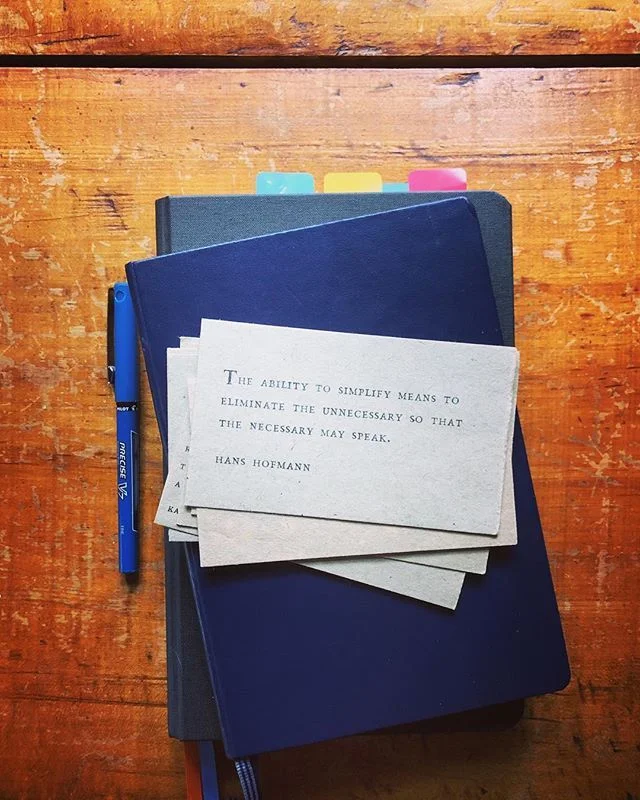 THE ABILITY TO SIMPLIFY MEANS TO
ELIMINATE THE UNNECESSARY SO THAT
THE NECESSARY MAY SPEAK.
HANS HOFMANN
T
A
KA
PILOT
PRECISE V5